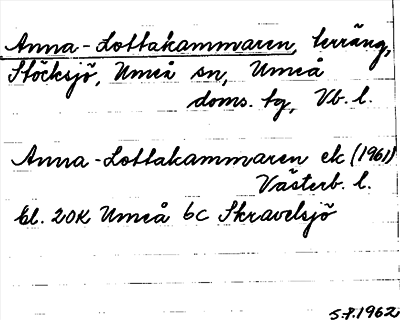 Anna-Lottakammaren, terräng,
Stöcksjö, Umeå sn, Umeå
doms. tg, Vb. l.
Anna-Lottakammaren ek (1961)
Västerb. l.
Bl. 20K Umeå 6c Skravelsjö
5.7.1962